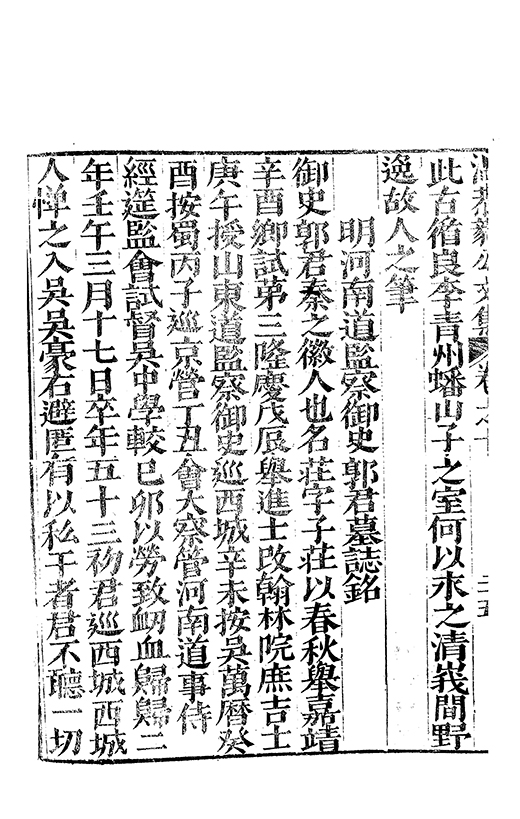 文集 卷之十
此古循良李青州蟠山子之室何以永之清峩間野
逸故人之筆
明河南道監察御史郭君墓誌銘
御史郭君秦之徽人也名莊字子莊以春秋舉嘉靖
辛酉鄉試第三隆慶戊辰舉進士改翰林院庶吉士
庚午授山東道監察御史巡西城辛未按吳萬曆癸
酉按蜀丙子巡京營丁丑會大察管河南道事侍
經筵監會試督吳中學較已卯以勞致衂血歸歸二
年壬午三月十七日卒年五十三初君巡西城西城
人憚之入吳吳豪右避匿有以私干者君不聽一切